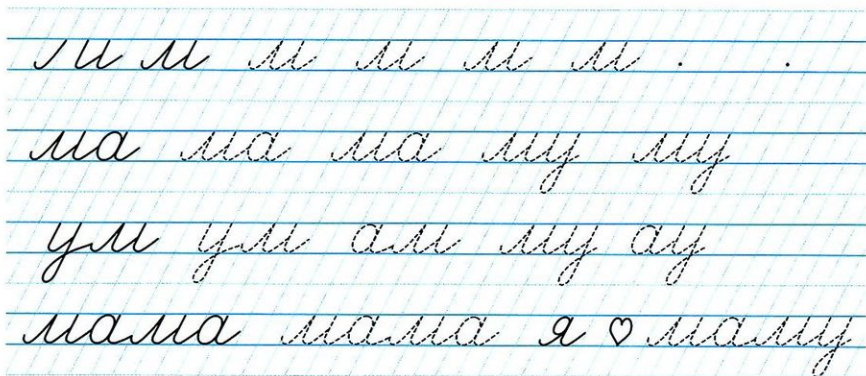 ли м м м м м . .
ма ма ма му му
ум ум ам му ау
мама мама я ♡ маму